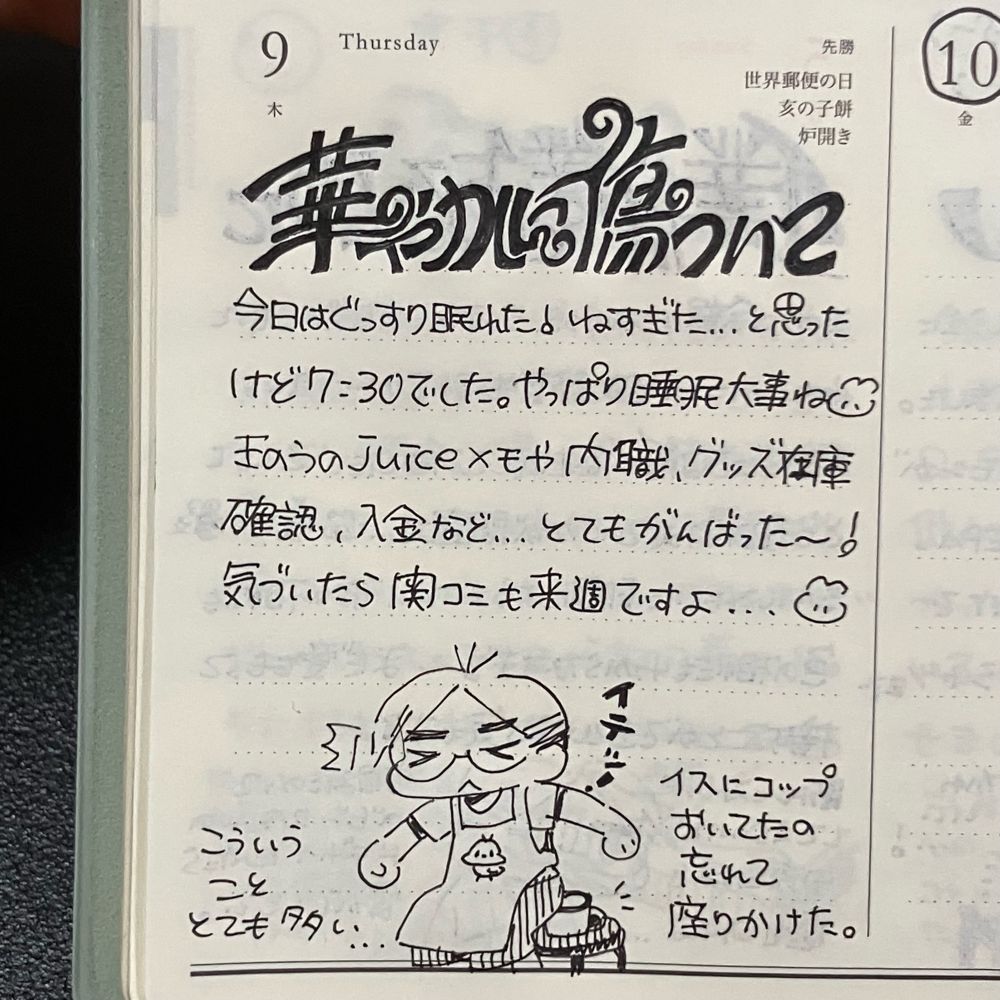 9
Thursday
木
先勝
世界郵便の日
亥の子餅
炉開き
10
金
華やかに傷ついて
今日はどっすり眠れた！ねすぎた…と思った
けど7:30でした。やっぱり睡眠大事ね
きのうのJuice×モヤ内職、グッズ在庫
確認、入金など…とてもがんばった〜！
気づいたら関コミも来週ですよ...
イテッ！
イスにコップ
おいてたの
忘れて
座りかけた。
こういう
こと
とても多い...